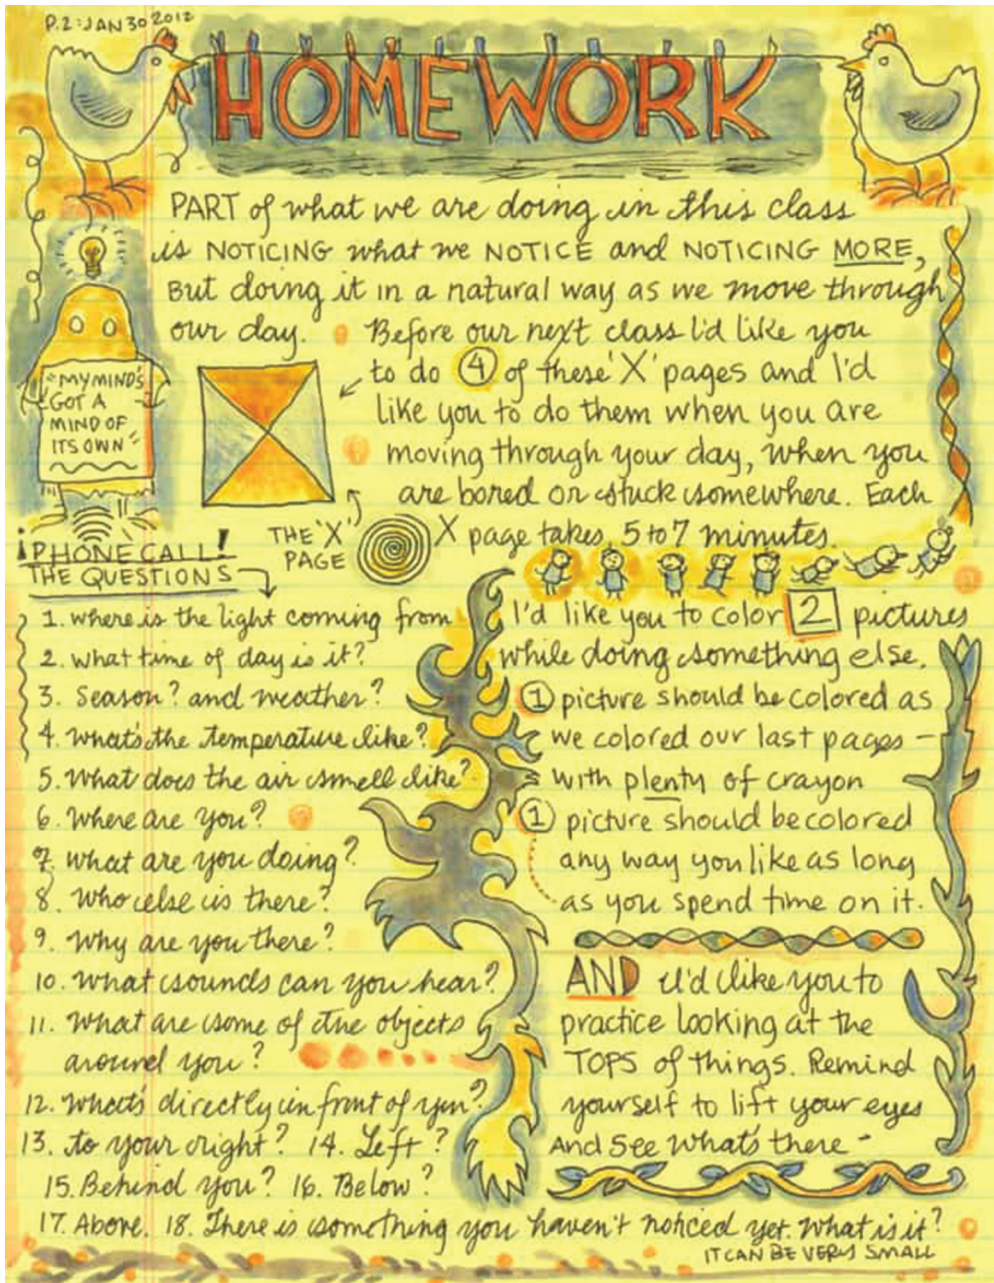 P.2: JAN 30 2012
HOMEWORK
PART of what we are doing in this class
is NOTICING what we NOTICE and NOTICING MORE,
But doing it in a natural way as we move through
our day. Before our next class I'd like you
to do 4 of these 'X' pages and I'd
like you to do them when you are
moving through your day, when you
are bored or stuck somewhere. Each
X page takes 5 to 7 minutes.
"MY MIND'S
GOT A
MIND OF
ITS OWN"
THE 'X'
PAGE
¡PHONE CALL!
THE QUESTIONS
1. where is the light coming from
2. what time of day is it?
3. Season? and weather?
4. what's the temperature like?
5. What does the air smell like?
6. Where are you?
7. what are you doing?
8. Who else is there?
9. Why are you there?
10. What sounds can you hear?
11. What are some of the objects
around you?
12. What's directly in front of you?
13. to your right? 14. Left?
15. Behind you? 16. Below?
17. Above. 18. There is something you haven't noticed yet. What is it?
IT CAN BE VERY SMALL
I'd like you to color 2 pictures
while doing something else.
1 picture should be colored as
we colored our last pages –
with plenty of crayon
1 picture should be colored
any way you like as long
as you spend time on it.
AND I'd like you to
practice looking at the
TOPS of things. Remind
yourself to lift your eyes
And See what's there -